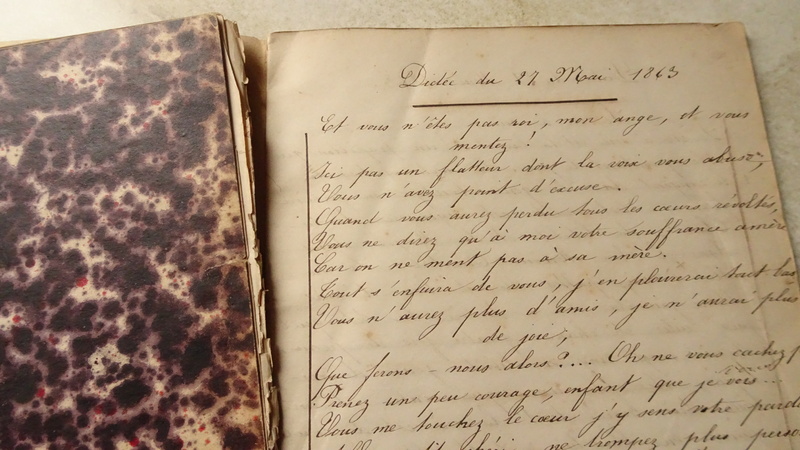 Dictée du 27 Mai 1863
Et vous n'êtes pas roi, mon ange, et vous
mentez !
Ici pas un flatteur dont la voix vous abuse,
Vous n'avez point d'excuse.
Quand vous aurez perdu tous les cœurs révoltés,
Vous ne direz qu'à moi votre souffrance amère
Car on ne ment pas à sa mère.
Tout s'enfuira de vous, j'en pleurerai tout bas
Vous n'aurez plus d'amis, je n'aurai plus
de joie,
Que ferons-nous alors ?.... Oh ne vous cachez
Prenez un peu courage, enfant que je vois...
Vous me touchez le cœur j'y sens votre
ne trompez plus